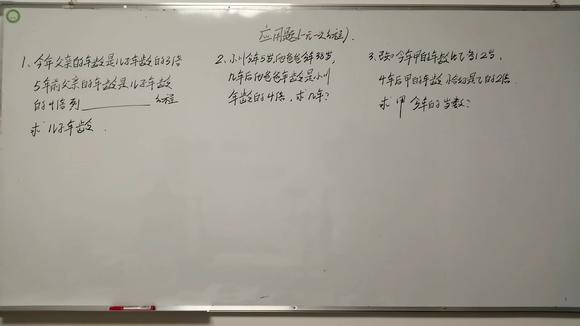 应用题(一元一次方程).
1、今年父亲的年龄是儿子年龄的3倍
5年前父亲的年龄是儿子年龄
的4倍 列 方程
求儿子年龄.
2、小川今年5岁,他爸爸今年38岁,
几年后他爸爸年龄是小川
年龄的4倍,求几年?
3.已知今年甲的年龄比乙大12岁,
4年后甲的年龄恰好是乙的2倍.
求甲今年的岁数?